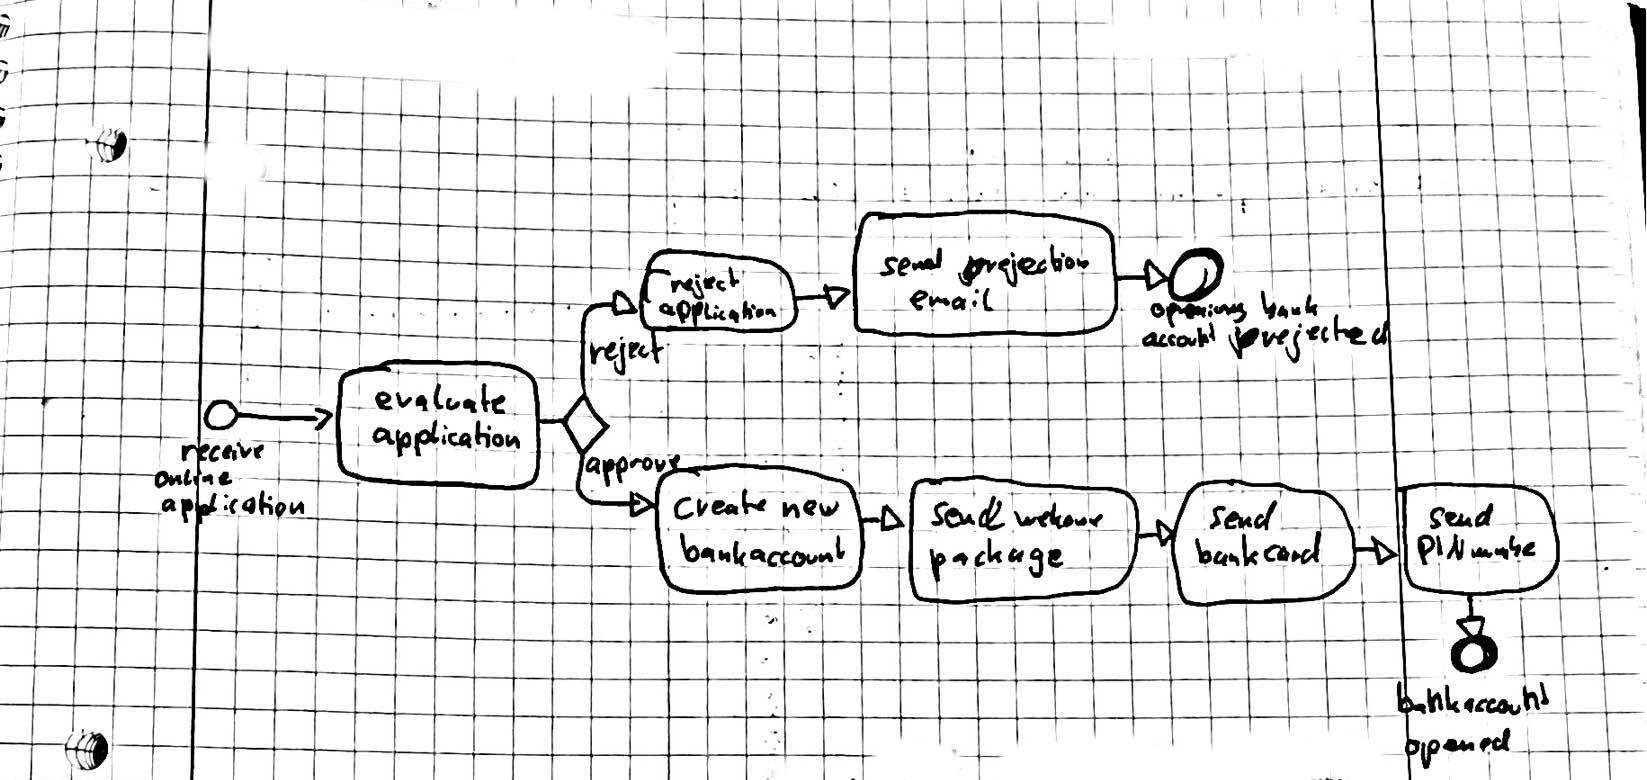 receive
online
application
evaluate
application
reject
approve
reject
application
send rejection
email
opening bank
account rejected
Create new
bankaccount
send welcome
package
send
bankcard
send
PIN
bankaccount
opened